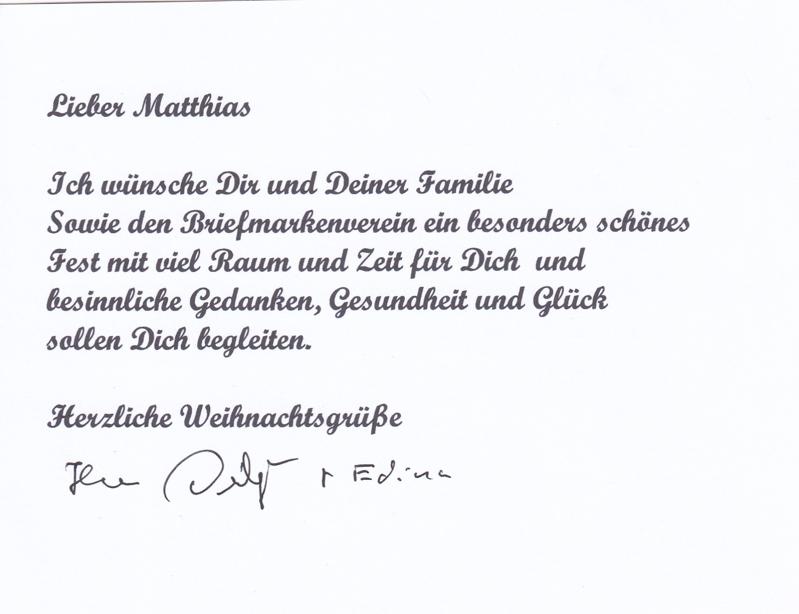 Lieber Matthias
Ich wünsche Dir und Deiner Familie
Sowie den Briefmarkenverein ein besonders schönes
Fest mit viel Raum und Zeit für Dich und
besinnliche Gedanken, Gesundheit und Glück
sollen Dich begleiten.
Herzliche Weihnachtsgrüße
Edina